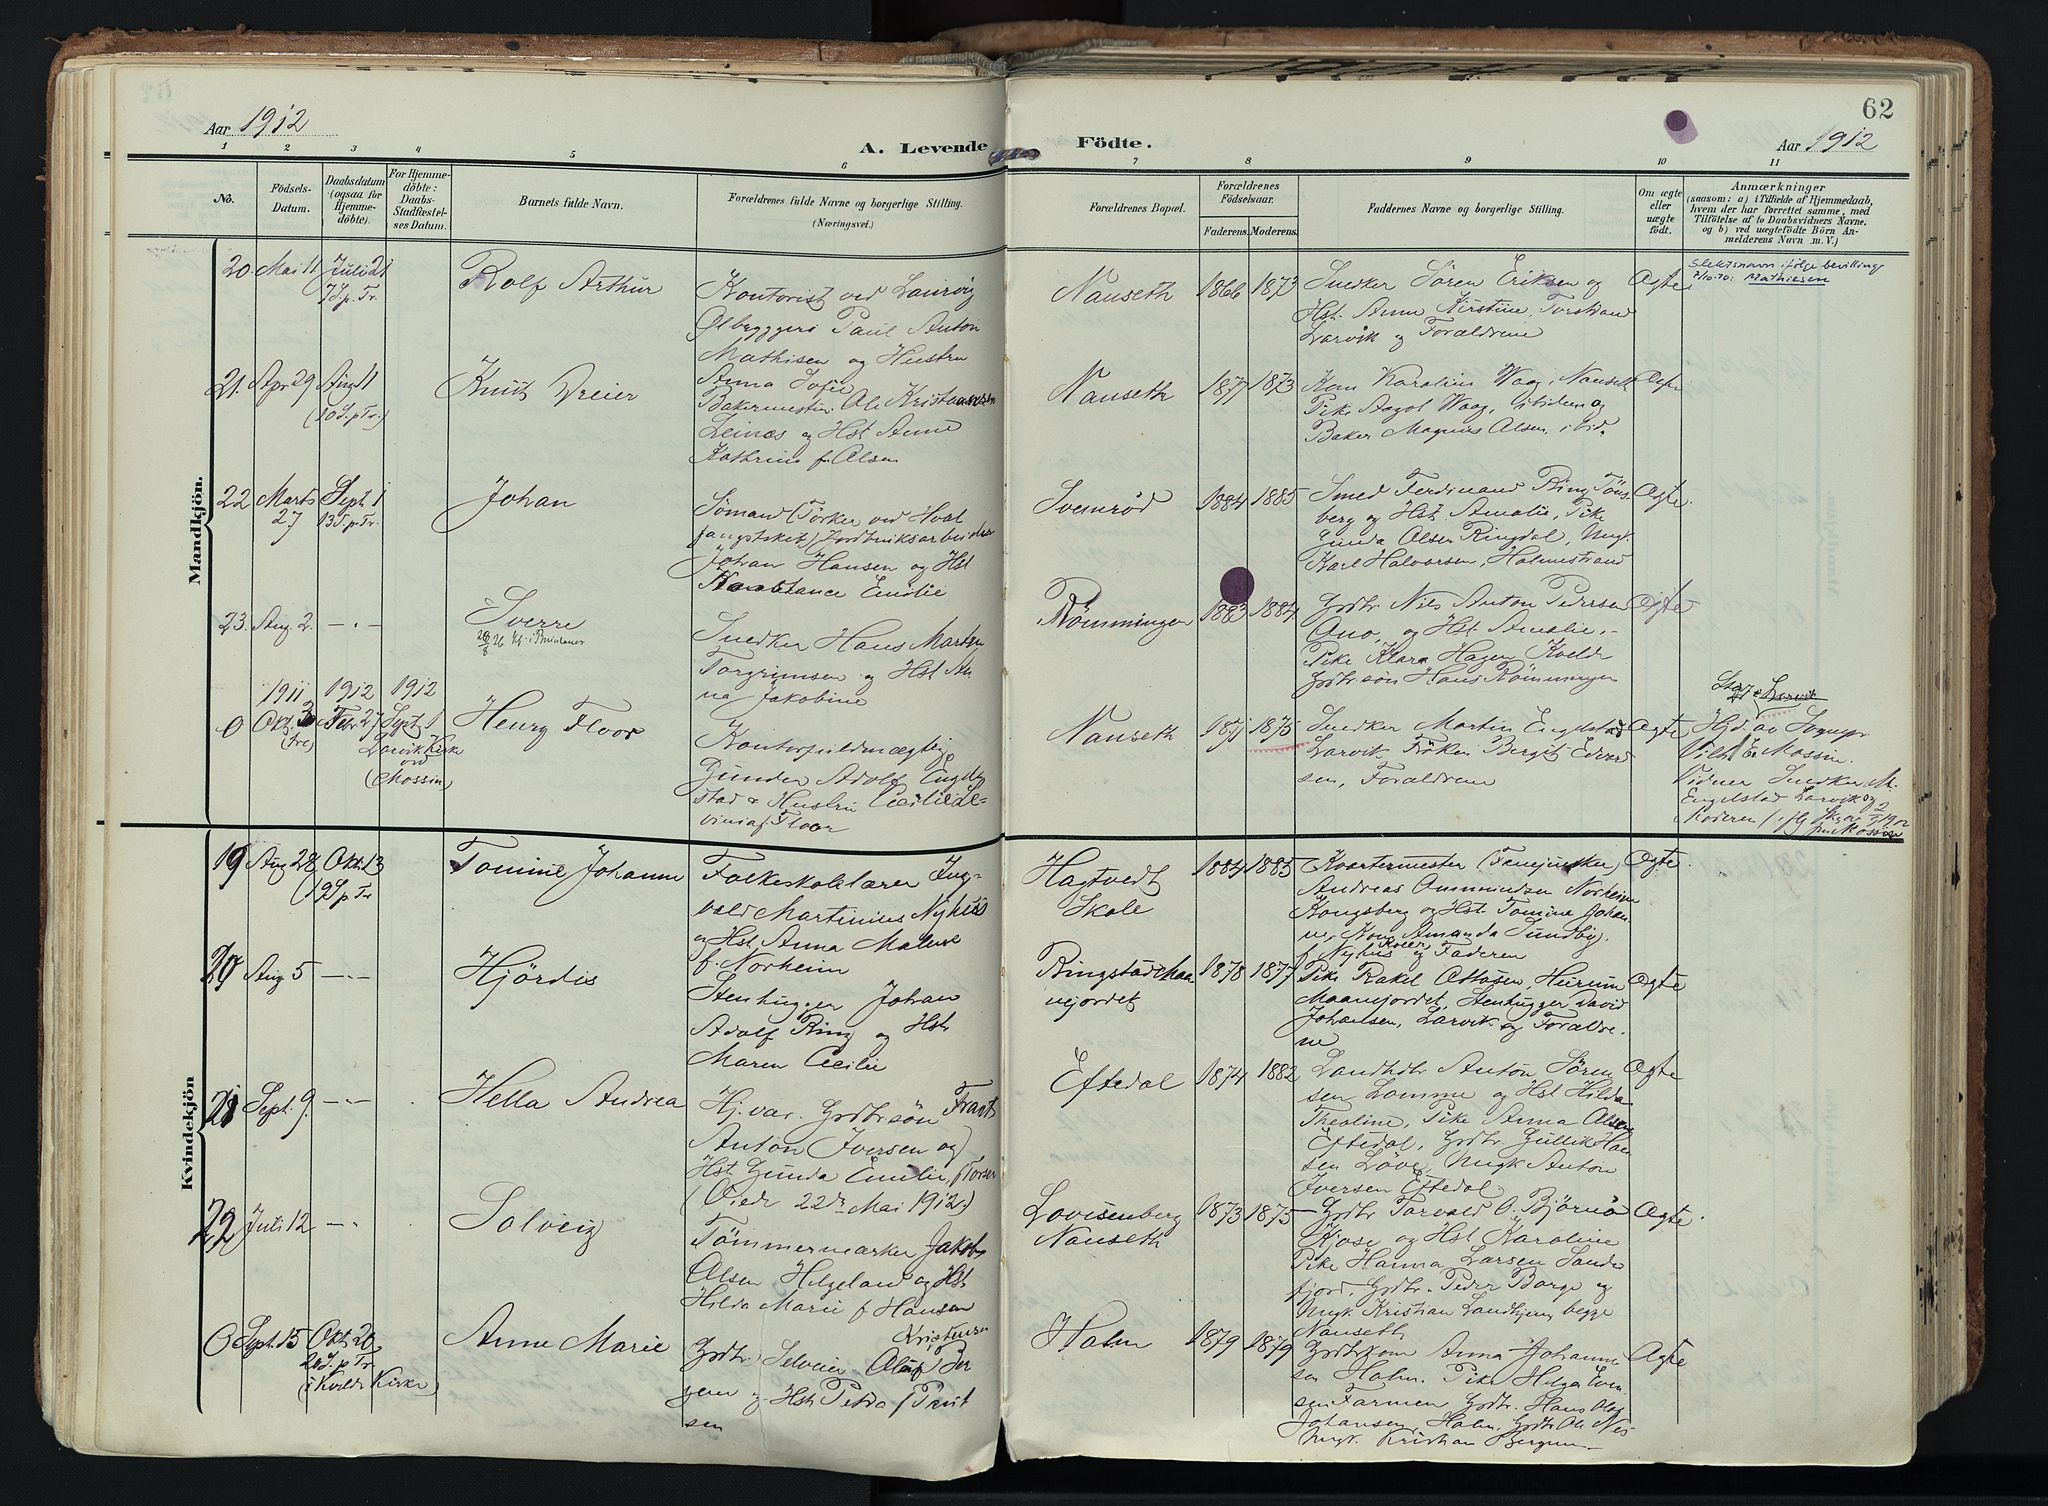 62
Aar 1912
A. Levende
Födte.
Aar 1912
1 2 3 4 5 6 7 8 9 10 11
No.
Födsels-
Datum.
Daabsdatum
(ogsaa for
Hjemme-
döbte).
For Hjemme-
döbte:
Daabs-
Stadfæstel-
ses Datum.
Barnets fulde Navn.
Forældrenes fulde Navne og borgerlige Stilling.
(Næringsvei.)
Forældrenes Bopæl.
Forældrenes
Födselsaar.
Faderens.
Moderens.
Faddernes Navne og borgerlige Stilling.
Om ægte
eller
uægte
födt.
Anmærkninger
(saasom: a) i Tilfælde af Hjemmedaab,
hvem der har forrettet samme, med
Tilföielse af to Daabsvidners Navne.
og b) ved uægtefödte Börn An-
melderens Navn m. V.)
Mandkjön.
20. Mai 11 Juli 21
7 S. p. Tr.
Rolf Arthur
Kontorist ved Laurvig
Ølbryggeri Paul Anton
Mathisen og Hustru
Anna Sofie
Nanseth 1866 1873
Snedker Sören Eriksen og
Hst. Anne Kirstine, Torstrand
Larvik og Forældrene
Ægte
Slektsnavn ifölge bevilling
Mathiesen
21. Apr 29 Aug 11
(10 S. p. Tr.)
Knut Dreier
Bakermester Ole Kristiansen
Leinæs og Hst Anne
Kathrine f. Olsen
Nanseth 1877 1873
Kone Karoline Waag, Nanseth
Pike Aagot Waag, ibidem og
Baker Magnus Olsen, ibid.
Ægte
22 Marts
27
Sept. 1
13 S. p. Tr.
Johan
Sömand (Törker ved Hval
fangstskib) Jordbruksarbeider
Johan Hansen og Hst
Konstance Emilie
Svemröd 1884 1885
Smed Ferdinand Ring Töns
berg og Hst. Amalie, Pike
Gunda Olsen Ringdal, Ungk.
Karl Halvorsen, Holmestrand
Ægte
23. Aug. 2. – " –
Sverre
Snedker Hans Martin
Torgrimsen og Hst An
na Jakobine
Römmingen 1883 1884
Grdbr. Nils Anton Pedersen
Ono, og Hst Amalie,
Pike Klara Hagen Kvelde
Grdbr.sön Hans Römmingen
Ægte
1911 1912 1912
0 Okt. Febr 27 Sept. 1
Larvik Kirke
ved
(Mossin)
Henry Floor
Kontorfuldmægtig
Gunder Adolf Engel
stad & Hustru Cecilie Le-
vinia f. Floor
Nanseth 1871 1875
Snedker Martin Engelstad
Larvik Fröken Bergit Evard
sen, Forældrene
Ægte
Larvik
Hjd. av Sognepr.
Vilh. E. Mossin.
Vidner Snedker M.
Engelstad Larvik og
Moderen
Kvindekjön
19 Aug 28 Okt. 13
(19 S. p. Tr
Tomine Johanne
Folkeskolelærer Ing-
vald Martinius Nyhus
og Hst. Anna Malene
f. Norheim
Hagtvedt
Skole
1884 1885
Kvartermester (Fanejunker)
Andreas Ommundsen Norheim
Kongsberg og Hst. Tomine Johan
ne, Kone Amanda Sundby
f. Nyhus og Faderen
Ægte.
20 Aug 5 – " –
Hjördis
Stenhugger Johan
Adolf Ring og Hst
Maren Cecilie
Ringstad Maa-
nejordet
1878 1877
Pike Rakel Ottosen, Heirum
Maanejordet, Stenhugger David
Johansen, Larvik og Forældre-
ne
Ægte
21 Sept. 9 – " –
Hella Andrea
Hj. var. Grdbr.sön Frants
Anton Iversen og
Hst. Gunda Emilie,
(Viet 22de Mai 1912.)
Eftedal 1874 1882
Landhdr Anton Sören
sen Lomme og Hst Hilda
Theoline, Pike Anna Olsen
Eftedal, Grdbr. Gullik Han
sen Löve, Ungk Anton
Iversen Eftedal
Ægte
22 Juli 12 – " –
Solveig
Tömmermerker Jakob
Olsen Helgeland og Hst
Hilda Marie f. Hansen
Lovisenberg
Nanseth
1873 1875
Grdbr Torvald O. Björnö
Kjose og Hst Karoline
Pike Hanna Larsen Sande
fjord, Grdbr. Peder Borge og
Ungk Kristian Landhjem, begge
Nanseth
Ægte.
0 Sept. 15 Okt. 20
20 S. p. Tr.
(i Kvelde Kirke)
Anne Marie
Kristensen
Grdbr. Selveier Oluf Jör
gen og Hst. Petra f. Peit
sen
Holm 1879 1879
Grdbr.kone Anna Johanne
sen Holm. Pike Helga Even
sen Farmen Grdbr. Hans Olaf
Johansen, Holm, Grdbr Ole Nes
Ungk. Kristian Bergene
Ægte